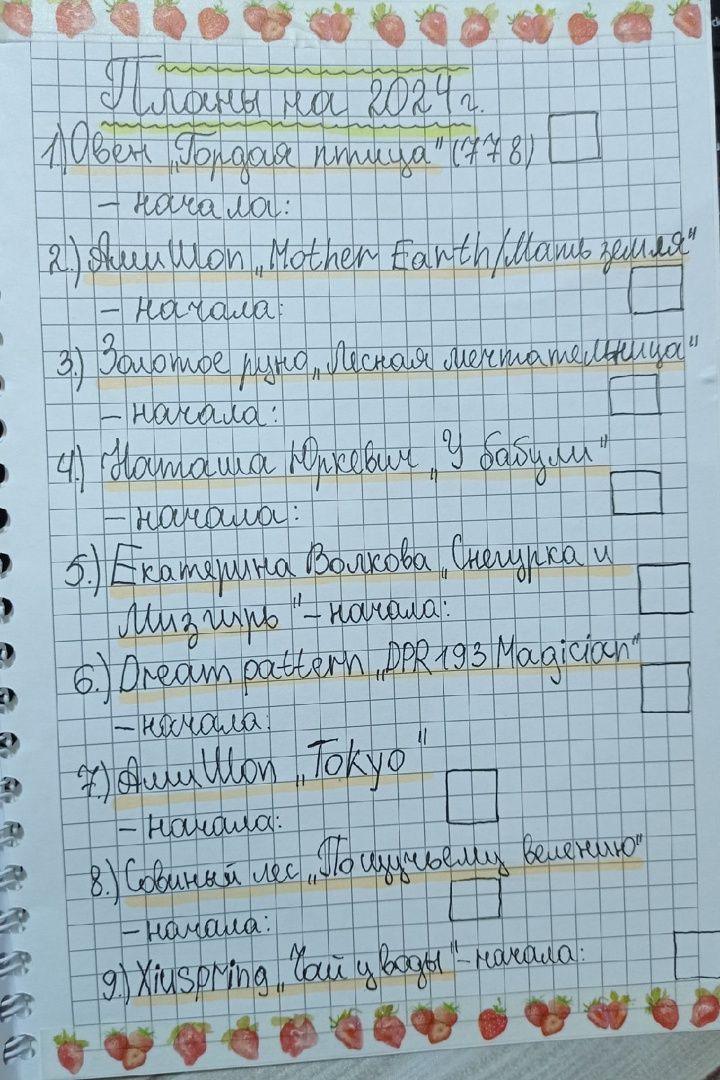 Планы на 2024 г.
1.) Овен „Гордая птица" (778)
- начала:
2.) АлиШоп „Mother Earth/Мать земля"
- начала:
3.) Золотое руно „Лесная мечтательница"
- начала:
4.) Наташа Юркевич „У бабули"
- начала:
5.) Екатерина Волкова „Снегурка и
Мизгирь" - начала:
6.) Dream pattern „DPR193 Magician"
- начала:
7.) АлиШоп „Tokyo"
- начала:
8.) Совиный лес „По щучьему велению"
- начала:
9.) Xiuspring „Чай у воды" - начала: